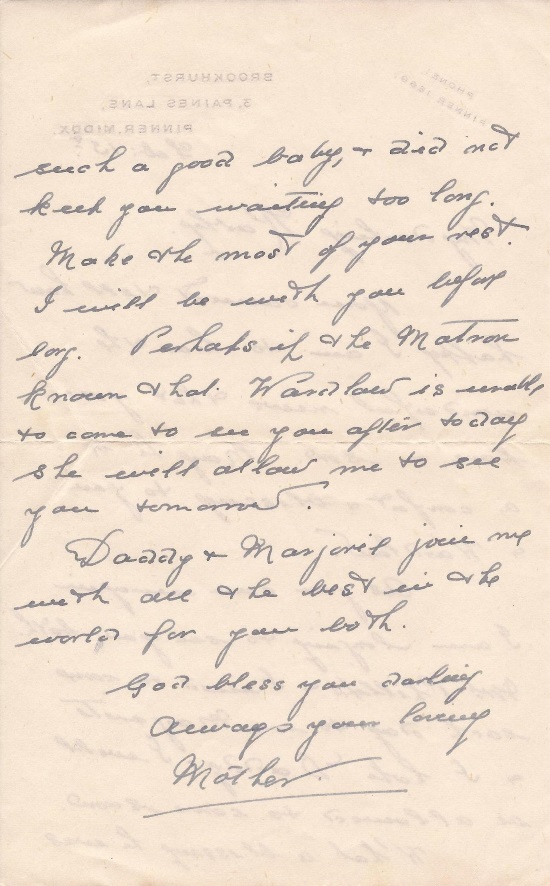 BROOKHURST,
3, PAINES LANE,
PINNER, MIDDX.
PHONE:
PINNER
such a good baby, & did not
keep you waiting too long.
Make the most of your rest.
I will be with you before
long. Perhaps if the Matron
knows that Wardlaw is unable
to come to see you after today
she will allow me to see
you tomorrow.
Daddy & Marjorie join me
with all the best in the
world for you both.
God bless you darling
Always your loving
Mother.